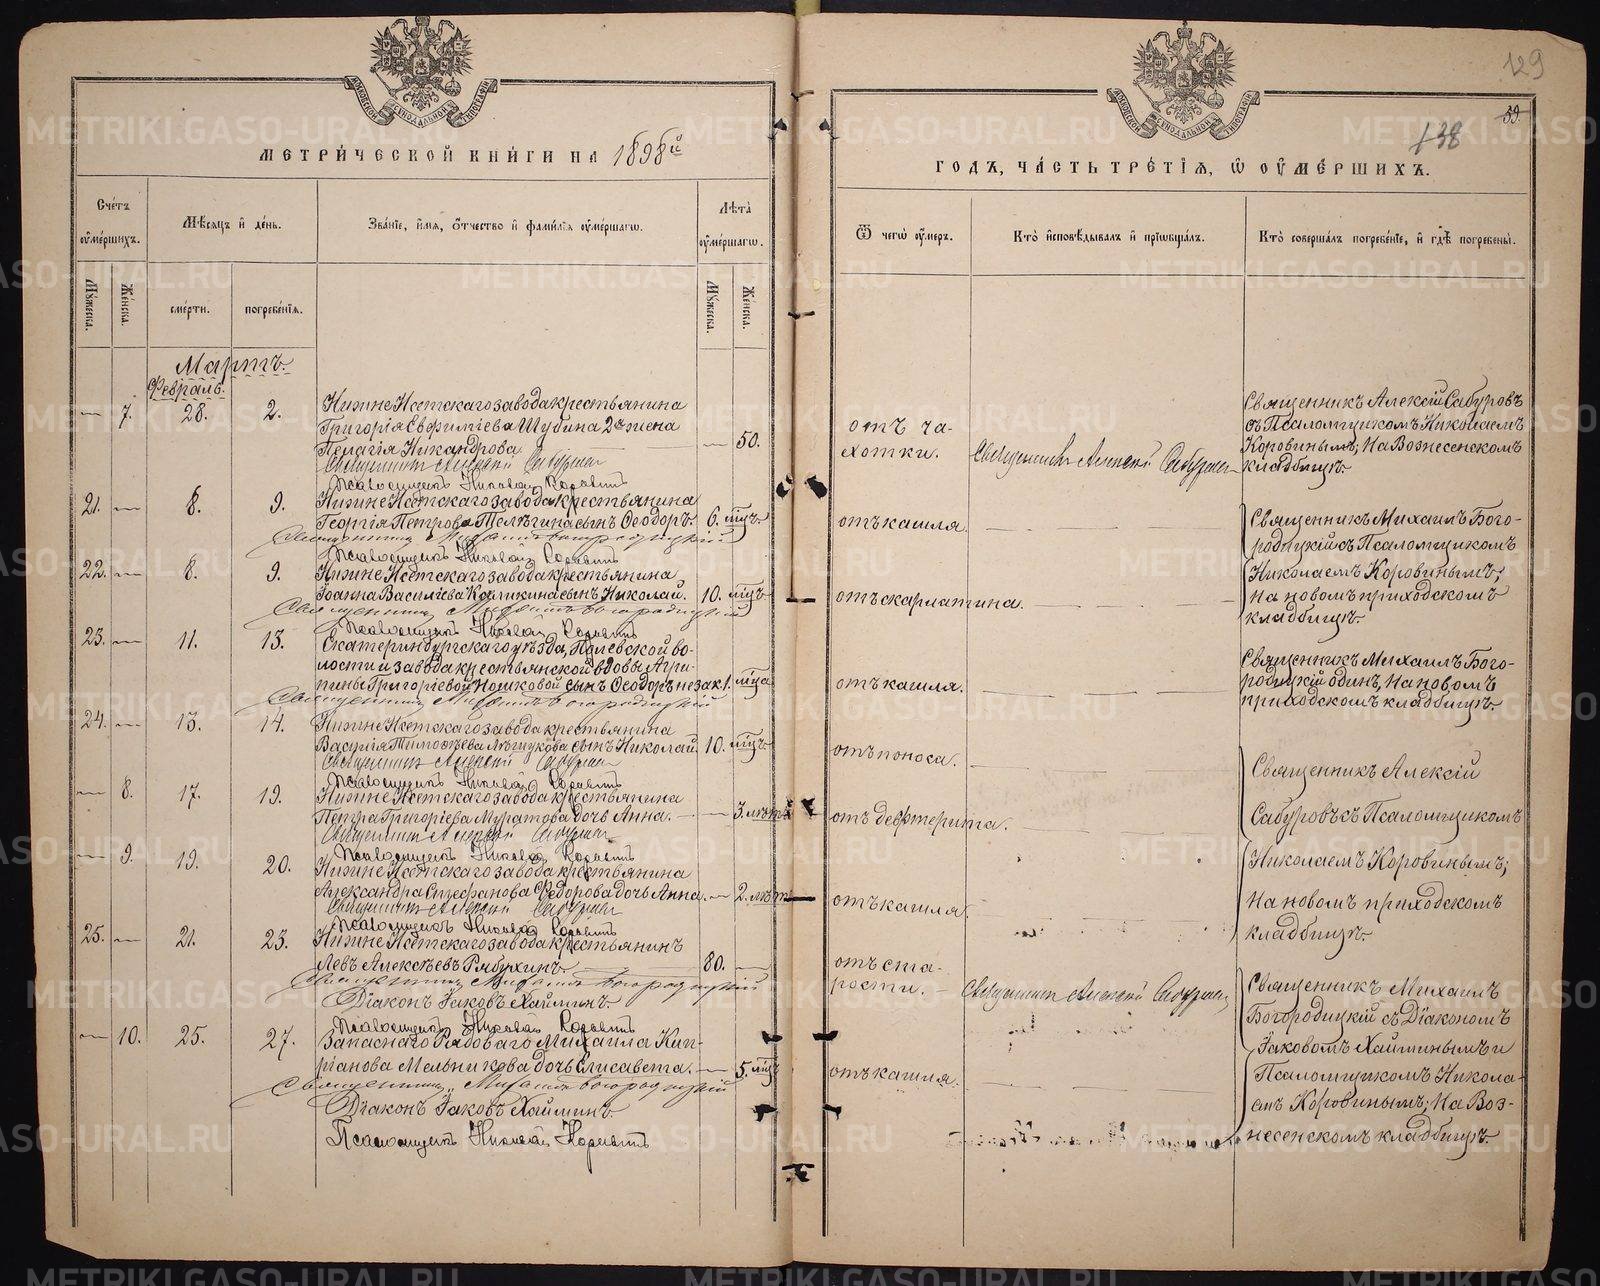 МЕТРИ́ЧЕСКОЙ КНИ́ГИ НА 1898й
Сче́тъ ᲂумє́ршихъ.
Мѣ́сяцъ и де́нь.
Зва́нїе, и́мя, ѻ҆́тчество и фами́лїя ᲂумє́ршагѡ.
Лѣ́та ᲂумє́ршагѡ.
Му́жеска.
Же́нска.
сме́рти.
погребе́нїя.
Му́жеска.
Же́нска.
Мартъ.
Февраль.
7. 28. 2. Нижне Исетскаго завода крестьянина
Григорія Евфиміева Шубина 2я жена
Пелагія Никандрова 50.
Священникъ Алексей Сабуровъ
Псаломщикъ Николай Коровинъ
21. 8. 9. Нижне Исетскаго завода крестьянина
Георгія Петрова Телѣгина сынъ Ѳеодоръ. 6. мцъ
Священникъ Михаилъ Богородицкій
Псаломщикъ Николай Коровинъ
22. 8. 9. Нижне Исетскаго завода крестьянина
Іоанна Васильева сынъ Николай. 10. мцъ
Священникъ Михаилъ Богородицкій
Псаломщикъ Николай Коровинъ
23. 11. 13. Екатеринбургскаго уѣзда, Полевской во-
лости и завода крестьянской вдовы Агри-
пины Григоріевой сынъ Ѳеодоръ незак. 1. мца
Священникъ Михаилъ Богородицкій
24. 13. 14. Нижне Исетскаго завода крестьянина
Василія Тимоѳѣева сынъ Николай. 10. мцъ
Священникъ Алексей Сабуровъ
Псаломщикъ Николай Коровинъ
8. 17. 19. Нижне Исетскаго завода крестьянина
Петра Григоріева Муратова дочь Анна. 3. лѣтъ
Священникъ Алексей Сабуровъ
Псаломщикъ Николай Коровинъ
9. 19. 20. Нижне Исетскаго завода крестьянина
Александра Стефанова Ѳедорова дочь Анна. 2. лѣтъ
Священникъ Алексей Сабуровъ
Псаломщикъ Николай Коровинъ
25. 21. 23. Нижне Исетскаго завода крестьянинъ
Левъ Алексѣевъ Рябухинъ. 80.
Священникъ Михаилъ Богородицкій
Діаконъ Іаковъ Хайминъ.
Псаломщикъ Николай Коровинъ
10. 25. 27. Запаснаго Рядоваго Михаила Кип-
ріанова Мельникова дочь Елисавета. 5. мцъ
Священникъ Михаилъ Богородицкій
Діаконъ Іаковъ Хайминъ.
Псаломщикъ Николай Коровинъ
129
39.
138
ГО́ДЪ, ЧА́СТЬ ТРЕ́ТЇЯ, Ѡ ОУМЕ́РШИХЪ.
Ѿ чегѡ̀ ᲂу́меръ.
Кто̀ и҆сповѣ́дывалъ и҆ прїѡбща́лъ.
Кто̀ соверша́лъ погребе́нїе, и҆ гдѣ̀ погребены̀.
отъ ча-
хотки. Священникъ Алексей Сабуровъ
Священникъ Алексій Сабуровъ
съ Псаломщикомъ Николаемъ
Коровинымъ; На Вознесенскомъ
кладбищѣ.
отъ кашля.
Священникъ Михаилъ Бого-
родицкій съ Псаломщикомъ
Николаемъ Коровинымъ;
на новомъ приходскомъ
кладбищѣ.
отъ скарлатина.
отъ кашля.
Священникъ Михаилъ Бого-
родицкій одинъ, На новомъ
приходскомъ кладбищѣ.
отъ поноса.
Священникъ Алексій
Сабуровъ съ Псаломщикомъ
Николаемъ Коровинымъ;
на новомъ приходскомъ
кладбищѣ.
отъ дефтерита.
отъ кашля.
отъ ста-
рости. Священникъ Алексей Сабуровъ
Священникъ Михаилъ
Богородицкій съ Діакономъ
Іаковомъ Хайминымъ и
Псаломщикомъ Никола-
емъ Коровинымъ; На Воз-
несенскомъ кладбищѣ.
отъ кашля.
METRIKI.GASO-URAL.RU